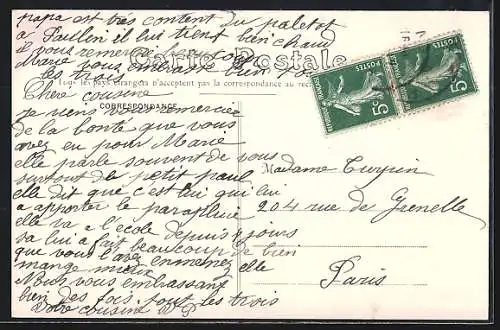 papa est très content du paletot
a Paullin il lui tient bien chaud
il vous remercie beaucoup
Marie vous embrasse bien fort
les trois
Carte Postale
Tous les pays étrangers n'acceptent pas la correspondance au recto
CORRESPONDANCE
Chère cousine
je viens vous remercier
de la bonté que vous
avez eu pour Marie
elle parle souvent de vous
surtout de petit paul
elle dit que c'est lui qui lui
a apporter le parapluie
elle va a l'école depuis 8 jours
sa lui a fait beaucoup de bien
que vous l'avez emmenez elle
mange mieux
Nous vous embrassont
bien des fois tout les trois
Votre cousine
Madame Turpin
204 rue de Grenelle
Paris
POSTES
5c
POSTES
5c